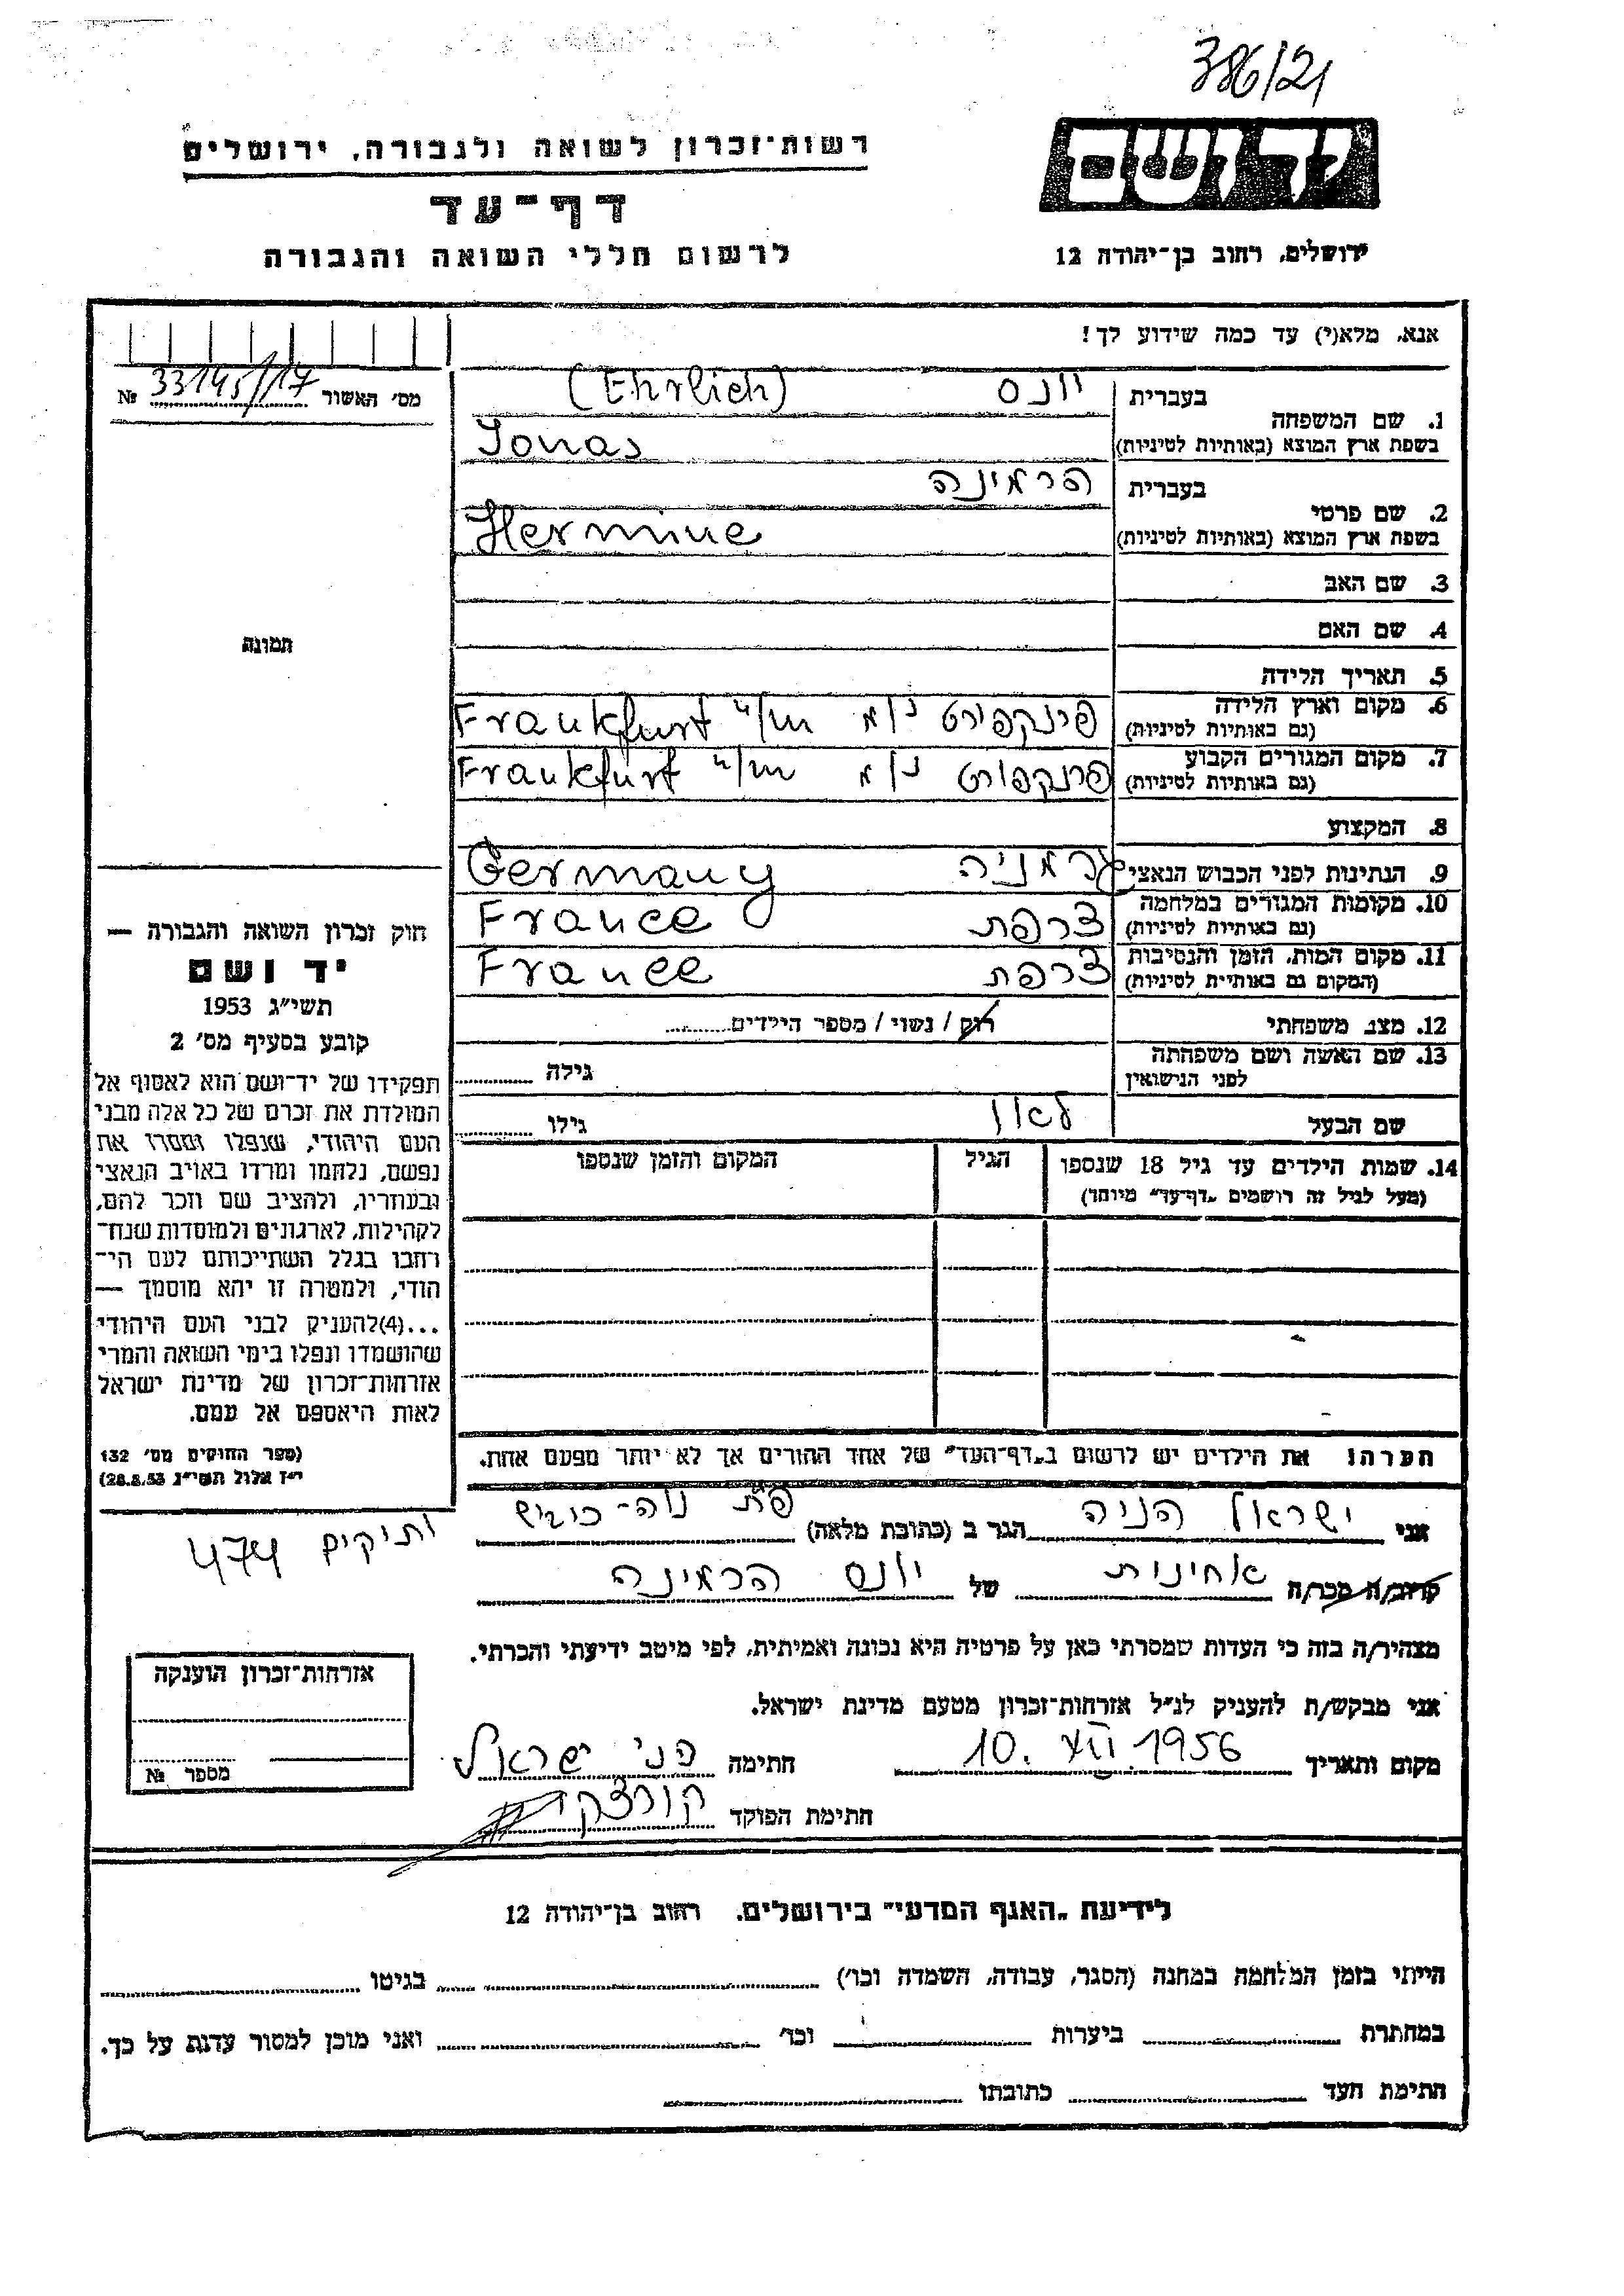 386/21
יד ושם
ירושלים, רחוב בן־יהודה 12
רשות־זכרון לשואה ולגבורה, ירושלים
דף־עד
לרשום חללי השואה והגבורה
אנא, מלא(י) עד כמה שידוע לך!
מס' האשור 33145/17 №
1. שם המשפחה
בעברית יונס (Ehrlich)
בשפת ארץ המוצא (באותיות לטיניות) Jonas
2. שם פרטי
בעברית הרמינה
בשפת ארץ המוצא (באותיות לטיניות) Hermine
3. שם האב
4. שם האם
5. תאריך הלידה
6. מקום וארץ הלידה
(גם באותיות לטיניות) פרנקפורט נ/מ Frankfurt a/m
7. מקום המגורים הקבוע
(גם באותיות לטיניות) פרנקפורט נ/מ Frankfurt a/m
8. המקצוע
9. הנתינות לפני הכבוש הנאצי גרמניה Germany
10. מקומות המגורים במלחמה
(גם באותיות לטיניות) צרפת France
11. מקום המות, הזמן והנסיבות
(המקום גם באותיות לטיניות) צרפת France
12. מצב משפחתי רוק / נשוי / מספר הילדים
13. שם האשה ושם משפחתה
לפני הנישואין גילה
שם הבעל לאון גילו
14. שמות הילדים עד גיל 18 שנספו
(מעל לגיל זה רושמים "דף־עד" מיוחד)
הגיל
המקום והזמן שנספו
הערה! את הילדים יש לרשום ב"דף־העד" של אחד ההורים אך לא יותר מפעם אחת.
תמונה
חוק זכרון השואה והגבורה —
יד ושם
תשי"ג 1953
קובע בסעיף מס' 2
תפקידו של יד־ושם הוא לאסוף אל
המולדת את זכרם של כל אלה מבני
העם היהודי, שנפלו ומסרו את
נפשם, נלחמו ומרדו באויב הנאצי
ובעוזריו, ולהציב שם וזכר להם,
לקהילות, לארגונים ולמוסדות שנח־
רחבו בגלל השתייכותם לעם הי־
הודי, ולמטרה זו יהא מוסמך —
...(4)להעניק לבני העם היהודי
שהושמדו ונפלו בימי השואה והמרי
אזרחות־זכרון של מדינת ישראל
לאות היאספם אל עמם.
(ספר החוקים מס' 132
י"ז אלול תשי"ג 28.8.53)
אני ישראל הניה הגר ב (כתובת מלאה) פ"ת נוה-כיבוש
ותיקים 474
קרוב/ה מכר/ה אחינות של יונס הרמינה
מצהיר/ה בזה כי העדות שמסרתי כאן על פרטיה היא נכונה ואמיתית, לפי מיטב ידיעתי והכרתי.
אני מבקש/ת להעניק לנ"ל אזרחות־זכרון מטעם מדינת ישראל.
מקום ותאריך 10. XII. 1956 חתימה הני ישראל
חתימת הפוקד
אזרחות־זכרון הוענקה
מספר №
לידיעת "האגף המדעי" בירושלים, רחוב בן־יהודה 12
הייתי בזמן המלחמה במחנה (הסגר, עבודה, השמדה וכו') בגיטו
במחתרת ביערות וכו' ואני מוכן למסור עדות על כך.
חתימת העד כתובתו